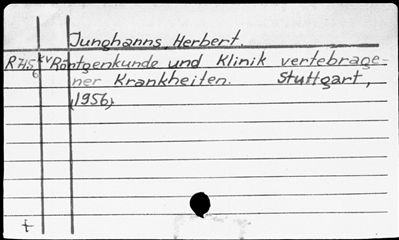 Junghanns, Herbert.
R 745 KV Röntgenkunde und Klinik vertebrage-
6 ner Krankheiten. Stuttgart,
(1956)